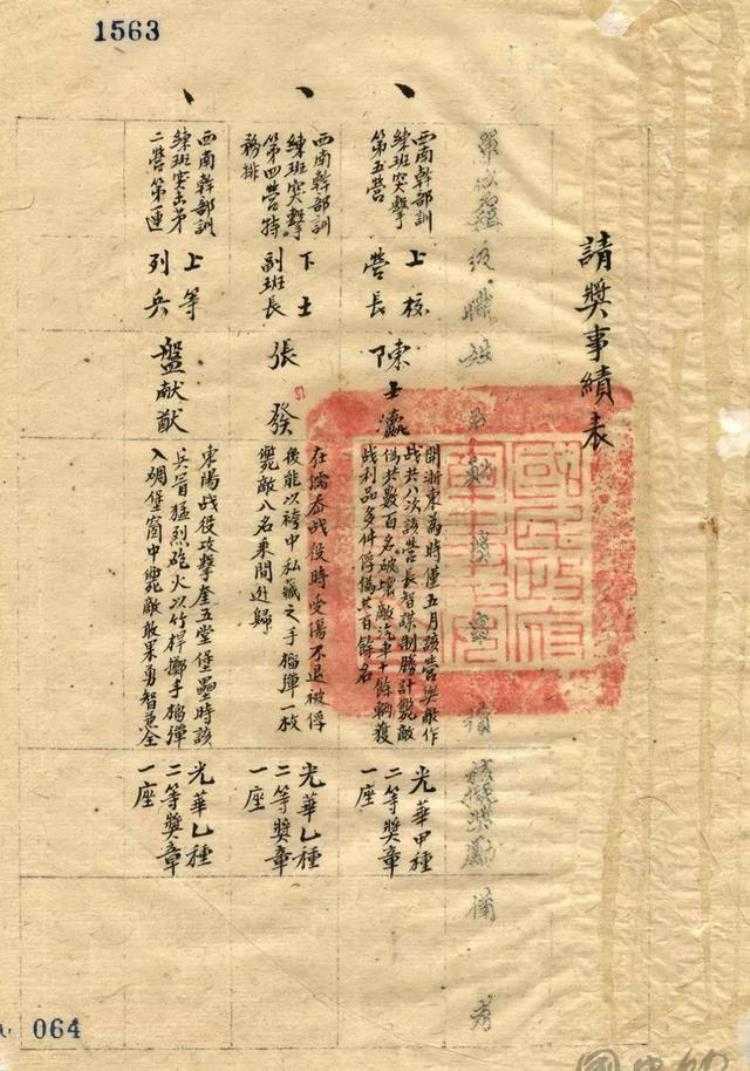 1563
請獎事績表
級職姓
備 考
西南幹部訓
練班突擊
第五營
上校
營長
陳士瀛
開浙東為時僅五月該營與敵作
战共八次該營長智謀制勝計斃敵
偽共數百名破壞敵汽車十餘輌獲
战利品多件俘偽共百餘名
光華甲種
二等獎章
一座
西南幹部訓
練班突擊
第四營特
務排
下士
副班長
張發
战役時受傷不退被俘
後能以袴中私藏之手榴彈一枚
斃敵八名乘間逃歸
光華乙種
二等獎章
一座
西南幹部訓
練班突击第
二營第一連
上等
列兵
盤献猷
東陽战役攻擊奎五堂堡壘時該
兵冒猛烈砲火以竹桿擲手榴彈
入碉堡窗中斃敵敢果勇智兼全
光華乙種
二等獎章
一座
064